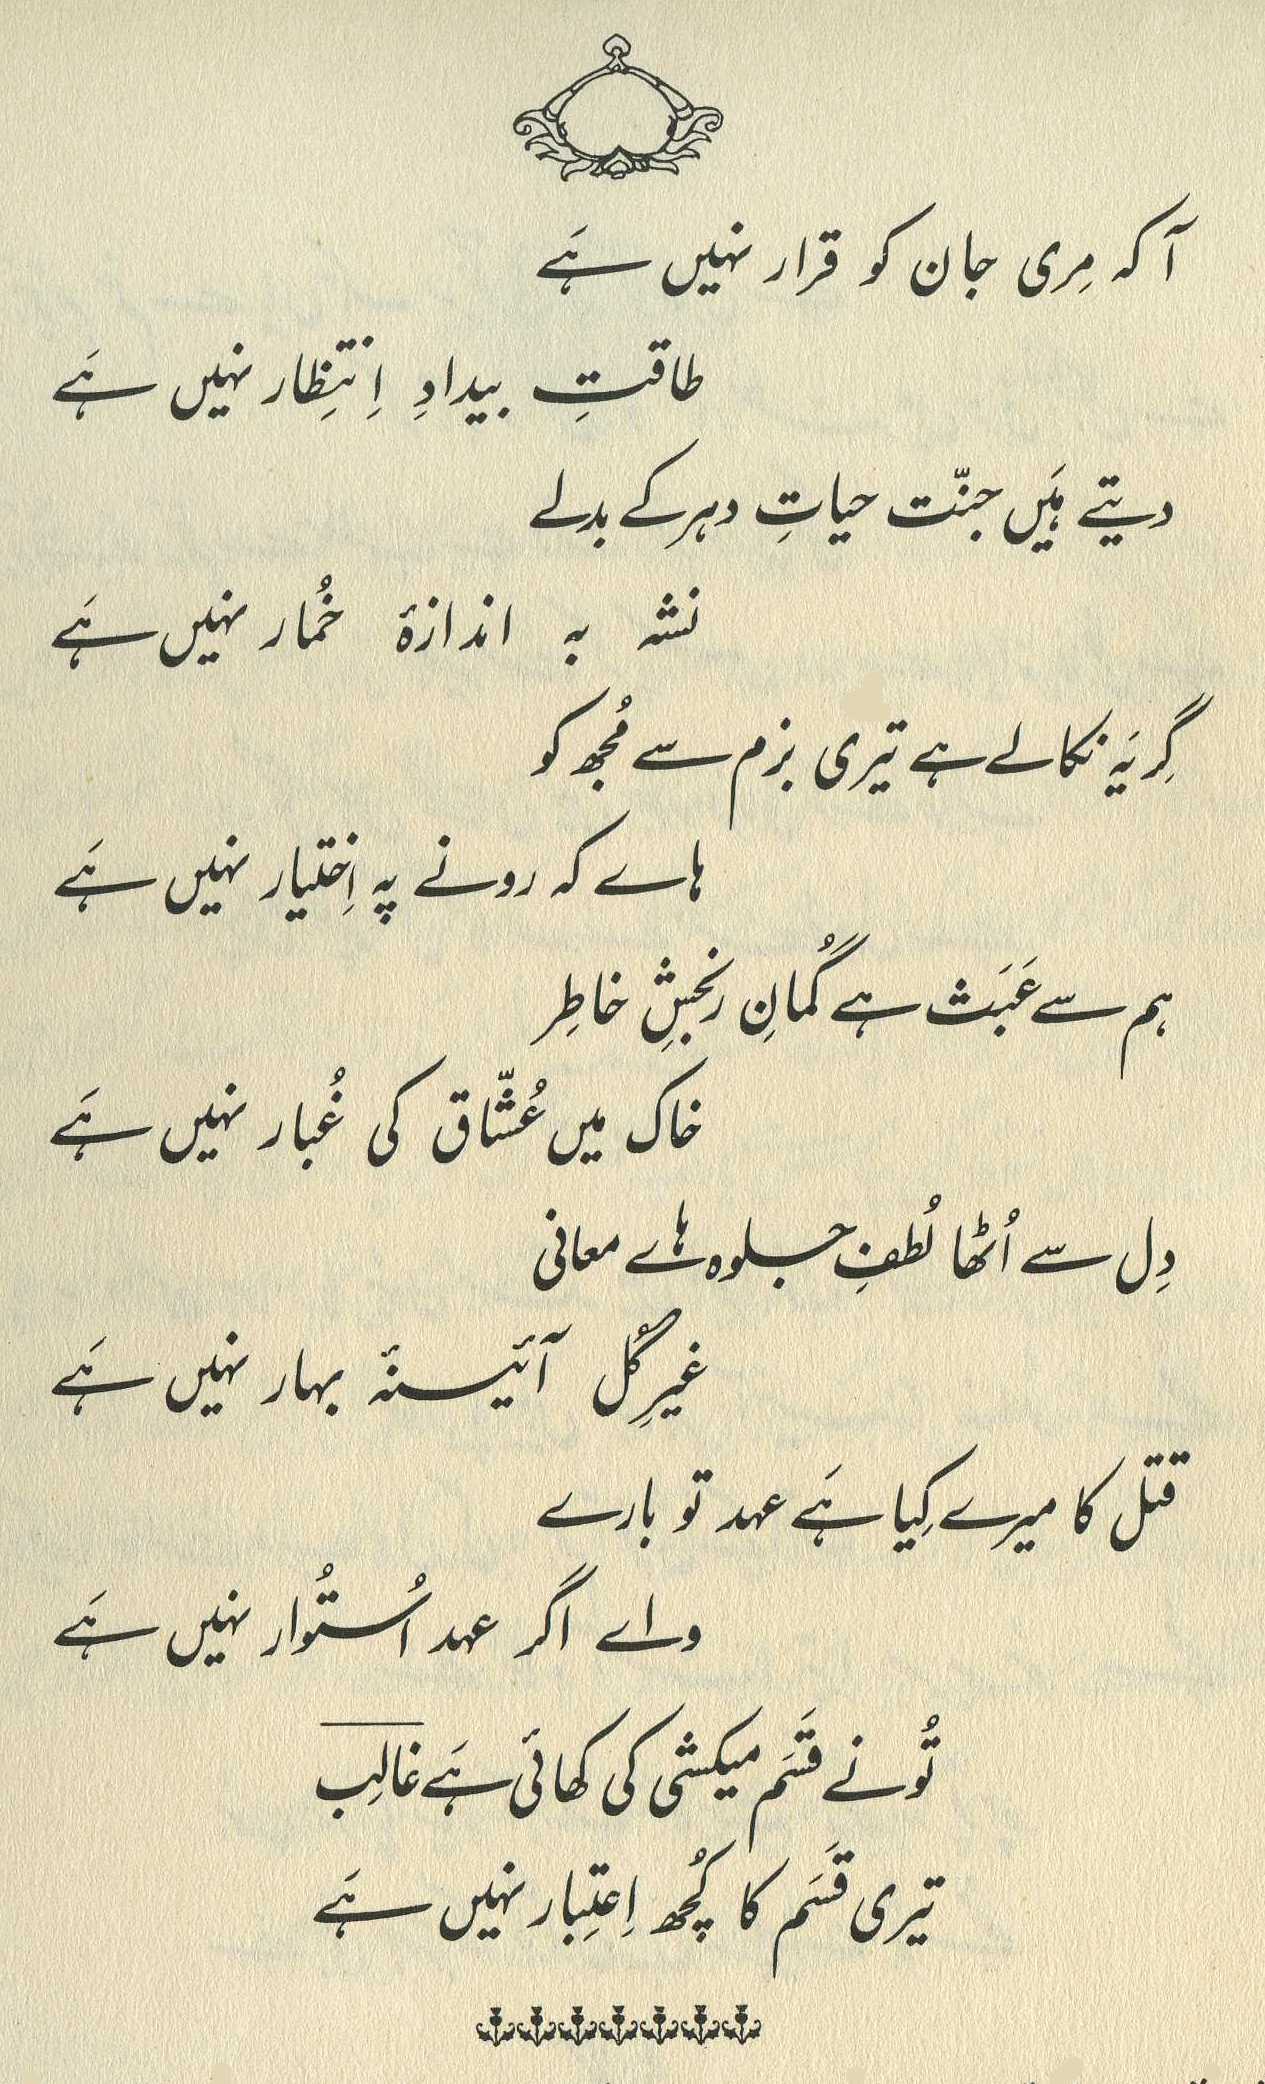 آ کہ مِری جان کو قرار نہیں ہَے
طاقتِ بیدادِ اِنتِظار نہیں ہَے
دیتے ہَیں جنّت حیاتِ دہر کے بدلے
نشہ بہ اندازۂ خُمار نہیں ہَے
گِریَہ نکالے ہے تیری بزم سے مُجھ کو
ہاے کہ رونے پہ اِختیار نہیں ہَے
ہم سے عَبَث ہے گُمانِ رنجشِ خاطِر
خاک میں عُشّاق کی غُبار نہیں ہَے
دِل سے اُٹھا لُطفِ جلوہ ہاے معانی
غیرِ گُل آئینۂ بہار نہیں ہَے
قتل کا میرے کِیا ہَے عہد تو بارے
واے اگر عہد اُستُوار نہیں ہَے
تُو نے قَسَم میکشی کی کھائی ہَے غالِب
تیری قَسَم کا کُچھ اِعتِبار نہیں ہَے